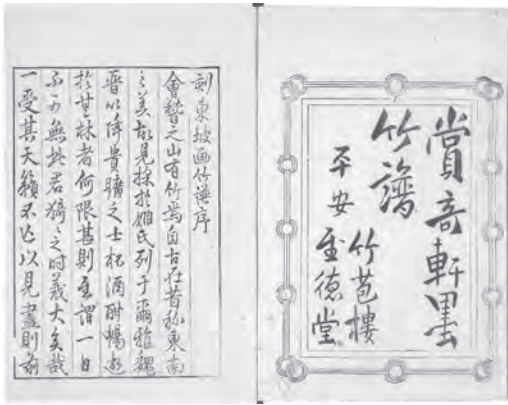 賞奇軒墨
竹譜
平安
竹苞樓
德堂
刻東坡画竹譜序
會稽之山有竹焉自古在昔称東南
之美故見採於姬氏列于爾雅魏
晋以降貴曠之士杯酒酣暢遊
於林者何限甚則至謂一日
不可無此君猗之時義大矣哉
一受其天籟不亡以見則